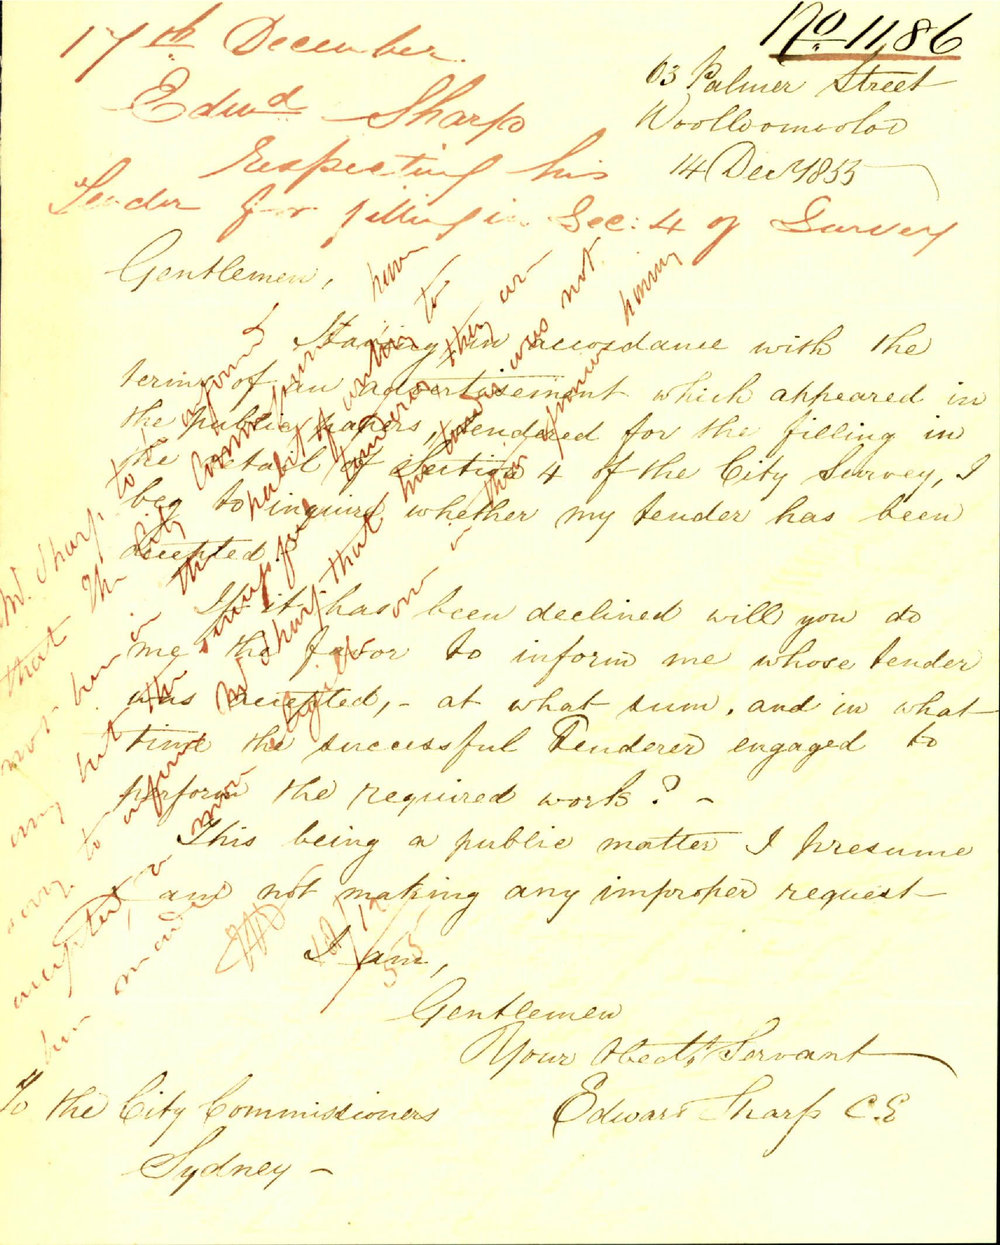 No 1186
17th December
Edwd Sharp
Respecting his
Tender for filling in Sec: 4 of Survey
63 Palmer Street
Woolloomooloo
14 Decr 1855
Gentlemen,
Having in accordance with the
terms of an advertisement which appeared in
the public papers, tendered for the filling in
the detail of Section 4 of the City Survey, I
beg to inquire whether my tender has been
accepted.
If it has been declined will you do
me the favor to inform me whose tender
was accepted, - at what sum, and in what
time the successful Tenderer engaged to
perform the required work? -
This being a public matter I presume
I am not making any improper request
I am,
Gentlemen
Your Obedt Servant
Edward Sharp C.E
To the City Commissioners
Sydney -
Mr. Sharp to be informed
that the City Commissioners have
never been in the habit of writing to
any but the successful tenderers they are
sorry to inform Mr Sharp that his tender was not
accepted, a more eligible one in their opinion having
been made